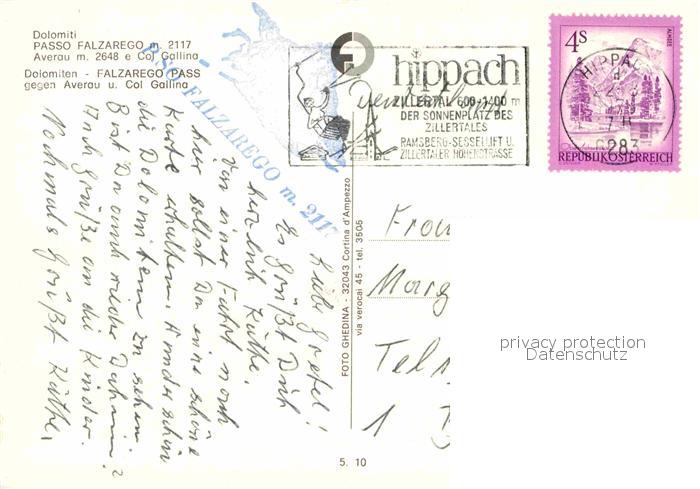 Dolomiti
PASSO FALZAREGO m. 2117
Averau m. 2648 e Col Gallina
Dolomiten - FALZAREGO PASS
gegen Averau u. Col Gallina
PASSO FALZAREGO m. 2117
hippach
ZILLERTAL 600-1400 m
DER SONNENPLATZ DES
ZILLERTALES
RAMSBERG-SESSELLIFT U.
ZILLERTALER HÖHENSTRASSE
4S
ALMSEE
REPUBLIK ÖSTERREICH
HIPPACH
6283
Liebe Gretel!
Es grüßt Dich
herzlich Käthe.
Von einer Fahrt nach
hier sollst Du eine schöne
Karte erhalten. Wunderschön
die Dolomiten zu sehen.
Bist Du auch wieder Daheim?
Auch Grüße an die Kinder.
Nochmals Grüßt Käthe.
FOTO GHEDINA - 32043 Cortina d'Ampezzo
via verocai 45 - tel. 3505
Frau
Marg
1 B
5. 10
privacy protection
Datenschutz